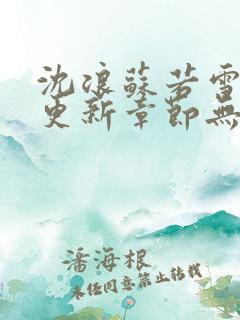 沈浪蘇若雪
更新章節無
潘海根
未经同意禁止转载